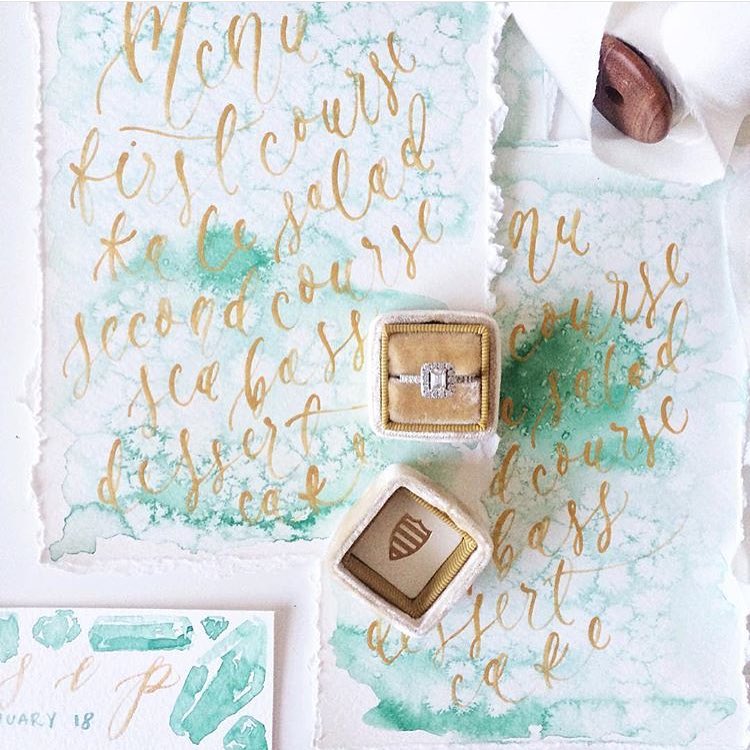 Menu
first course
Kale salad
second course
sea bass
dessert
cake
nu
course
salad
d course
bass
dessert
cake
s e p
UARY 18